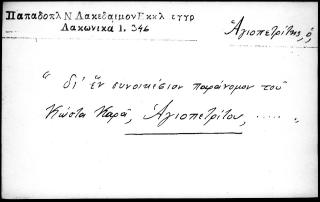 Παπαδοπλ Ν Λακεδαιμον Εκκλ εγγρ
Λακωνικά 1. 346
Ἁγιοπετρίτης, ὁ,
“ δι' ἕν συνοικέσιον παράνομον τοῦ
Κώστα Καρᾶ, Ἁγιοπετρίτου, ..... „